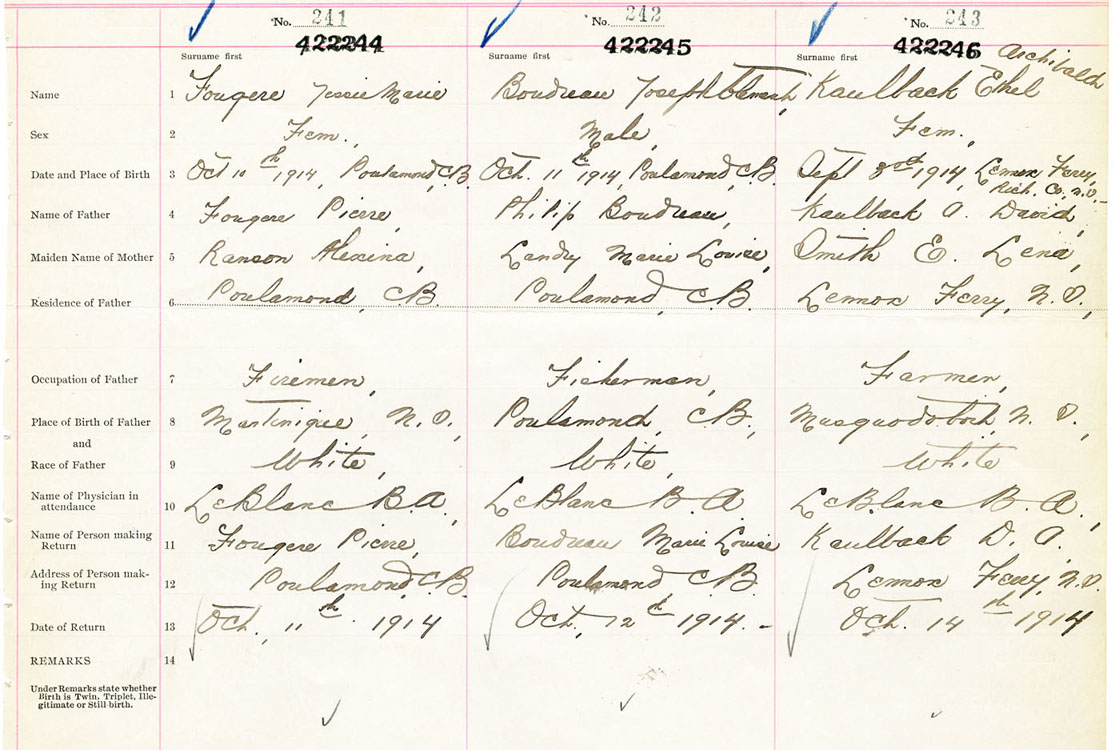 No. 241 No. 242 No. 243
422244 422245 422246 Archibald
Surname first Surname first Surname first
Name 1 Fougere Jessie Marie Boudreau Joseph Clement, Kaulback Ethel
Sex 2 Fem., Male, Fem.,
Date and Place of Birth 3 Oct 10th 1914, Poulamond, C.B. Oct. 11th 1914, Poulamond, C.B. Sept 3rd 1914, Lennox Ferry,
Rich. Co. N.S.
Name of Father 4 Fougere Pierre, Philip Boudreau, Kaulback A. David,
Maiden Name of Mother 5 Ranson Alexina, Landry Marie Louise, Smith E. Lena,
Residence of Father 6 Poulamond, C.B. Poulamond, C.B. Lennox Ferry, N.S.,
Occupation of Father 7 Firemen, Fisherman, Farmer,
Place of Birth of Father 8 Martinique, N.S., Poulamond, C.B., Musquodoboit N.S.,
and
Race of Father 9 White, White, White
Name of Physician in
attendance 10 LeBlanc B.A., LeBlanc B.A LeBlanc B.A.,
Name of Person making
Return 11 Fougere Pierre, Boudreau Marie Louise Kaulback D. A.,
Address of Person mak-
ing Return 12 Poulamond, C.B. Poulamond, C.B. Lennox Ferry, N.S.
Date of Return 13 Oct., 11th 1914 Oct., 12th 1914. Oct. 14th 1914
REMARKS 14
Under Remarks state whether
Birth is Twin, Triplet, Ille-
gitimate or Still-birth.